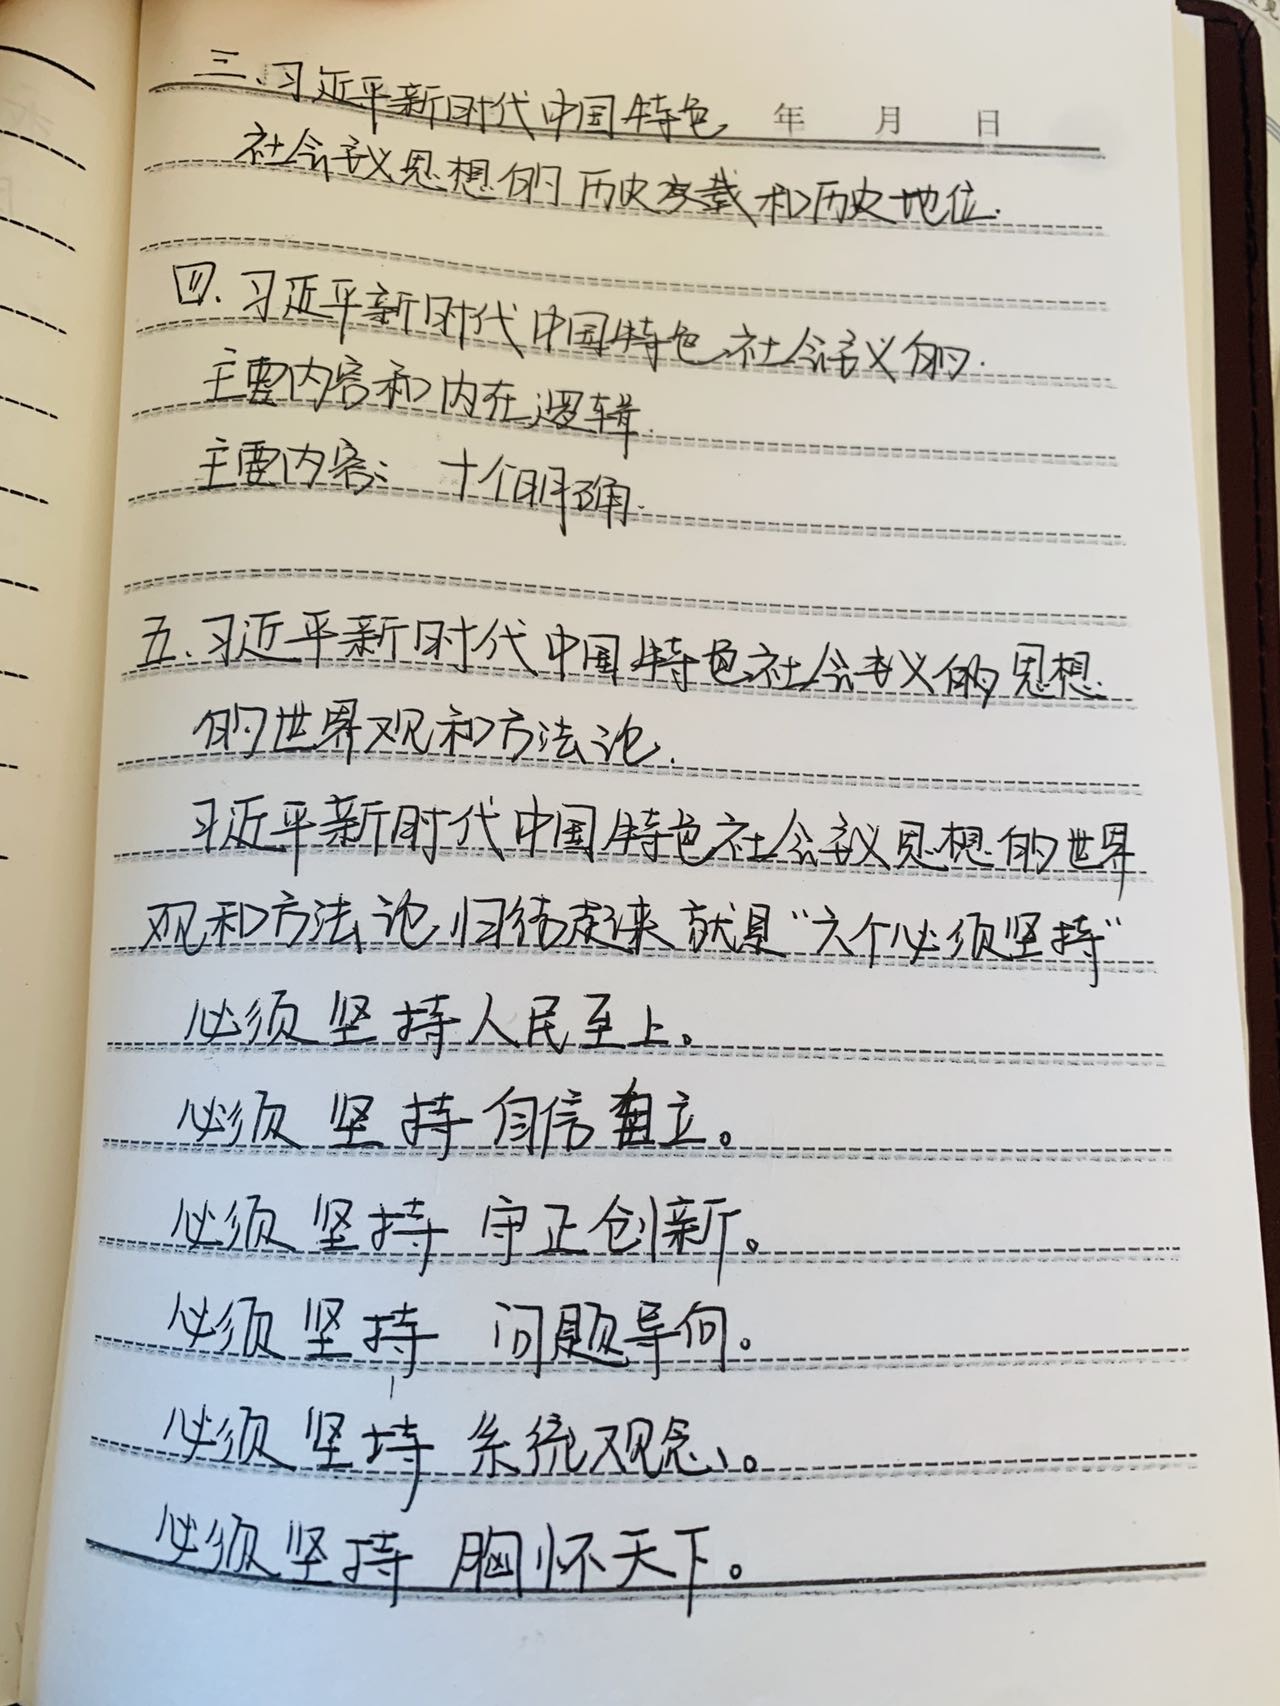 三、习近平新时代中国特色
年 月 日
社会主义思想的历史交载和历史地位.
四.习近平新时代中国特色社会主义的.
主要内容和内在逻辑.
主要内容: 十个明确.
五.习近平新时代中国特色社会主义的思想.
的世界观和方法论.
习近平新时代中国特色社会主义思想的世界
观和方法论,归结起来就是“六个必须坚持”
必须坚持人民至上。
必须坚持自信自立。
必须坚持守正创新。
必须坚持问题导向。
必须坚持系统观念、。
必须坚持胸怀天下。